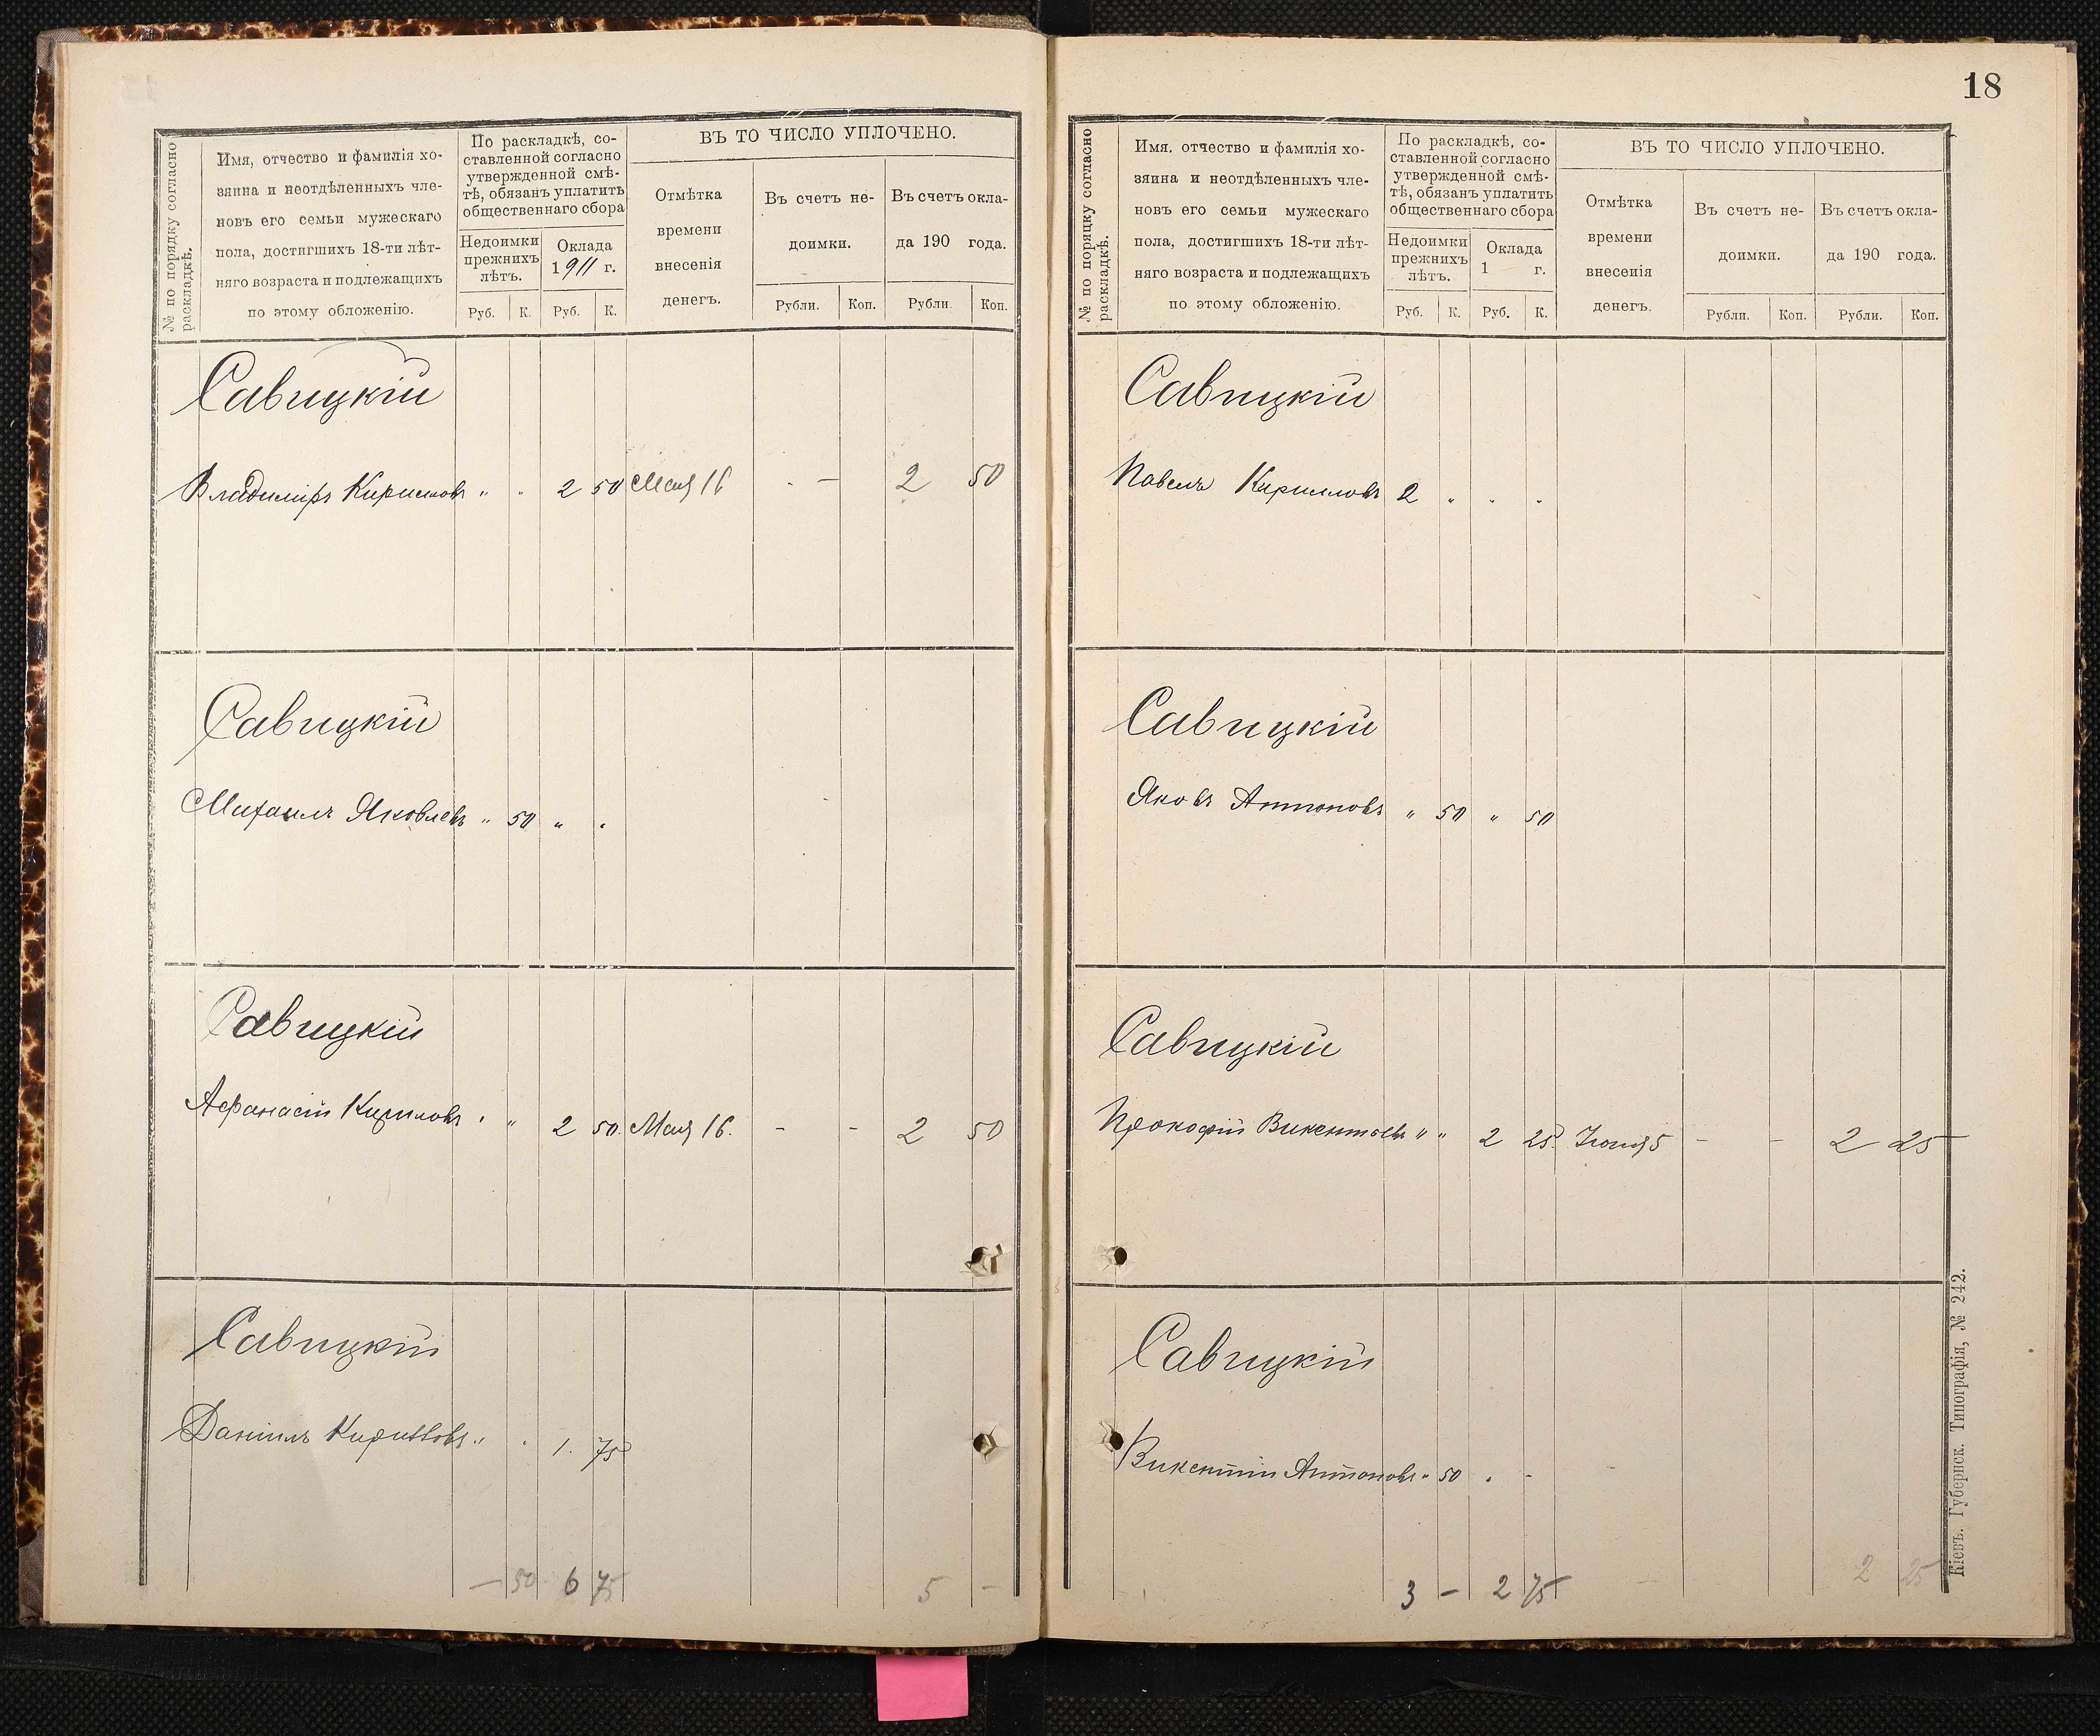 18
№ по порядку согласно раскладкѣ.
Имя, отчество и фамилія хо-
зяина и неотдѣленныхъ чле-
новъ его семьи мужескаго
пола, достигшихъ 18-ти лѣт-
няго возраста и подлежащихъ
по этому обложенію.
По раскладкѣ, со-
ставленной согласно
утвержденной смѣ-
тѣ, обязанъ уплатить
общественнаго сбора
Недоимки
прежнихъ
лѣтъ.
Оклада
1911 г.
Руб. К. Руб. К.
ВЪ ТО ЧИСЛО УПЛОЧЕНО.
Отмѣтка
времени
внесенія
денегъ.
Въ счетъ не-
доимки.
Въ счетъ окла-
да 190 года.
Рубли. Коп. Рубли. Коп.
Савицкій
Владиміръ Кириловъ " " 2 50 Мая 16 - — 2 50
Савицкій
Михаилъ Яковлевъ " 50 " "
Савицкій
Афанасій Кириловъ " " 2 50. Мая 16. - - 2 50
Савицкій
Даніилъ Кириловъ " " 1. 75
— 50 6 75 5 —
№ по порядку согласно раскладкѣ.
Имя, отчество и фамилія хо-
зяина и неотдѣленныхъ чле-
новъ его семьи мужескаго
пола, достигшихъ 18-ти лѣт-
няго возраста и подлежащихъ
по этому обложенію.
По раскладкѣ, со-
ставленной согласно
утвержденной смѣ-
тѣ, обязанъ уплатить
общественнаго сбора
Недоимки
прежнихъ
лѣтъ.
Оклада
1 г.
Руб. К. Руб. К.
ВЪ ТО ЧИСЛО УПЛОЧЕНО.
Отмѣтка
времени
внесенія
денегъ.
Въ счетъ не-
доимки.
Въ счетъ окла-
да 190 года.
Рубли. Коп. Рубли. Коп.
Савицкій
Павелъ Кирилловъ 2 " " "
Савицкій
Яковъ Антоновъ " 50 " 50
Савицкій
Прокофій Викентьевъ " " 2 25. Іюня 5 - - 2 25
Савицкій
Викентій Антоновъ " 50 " -
3 — 2 75 2 25
Кіевъ. Губернск. Типографія, № 242.